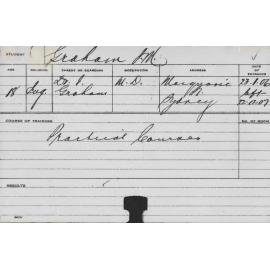 STUDENT Graham J.M.
AGE RELIGION PARENT OR GUARDIAN OCCUPATION ADDRESS DATE OF ENTRANCE
18 Eng. Dr. J. Graham M.D. Macquarie St. Sydney 22.8.06 left 12.12.07
COURSE OF TRAINING NO. OF ROOM
Practical Courses
RESULTS